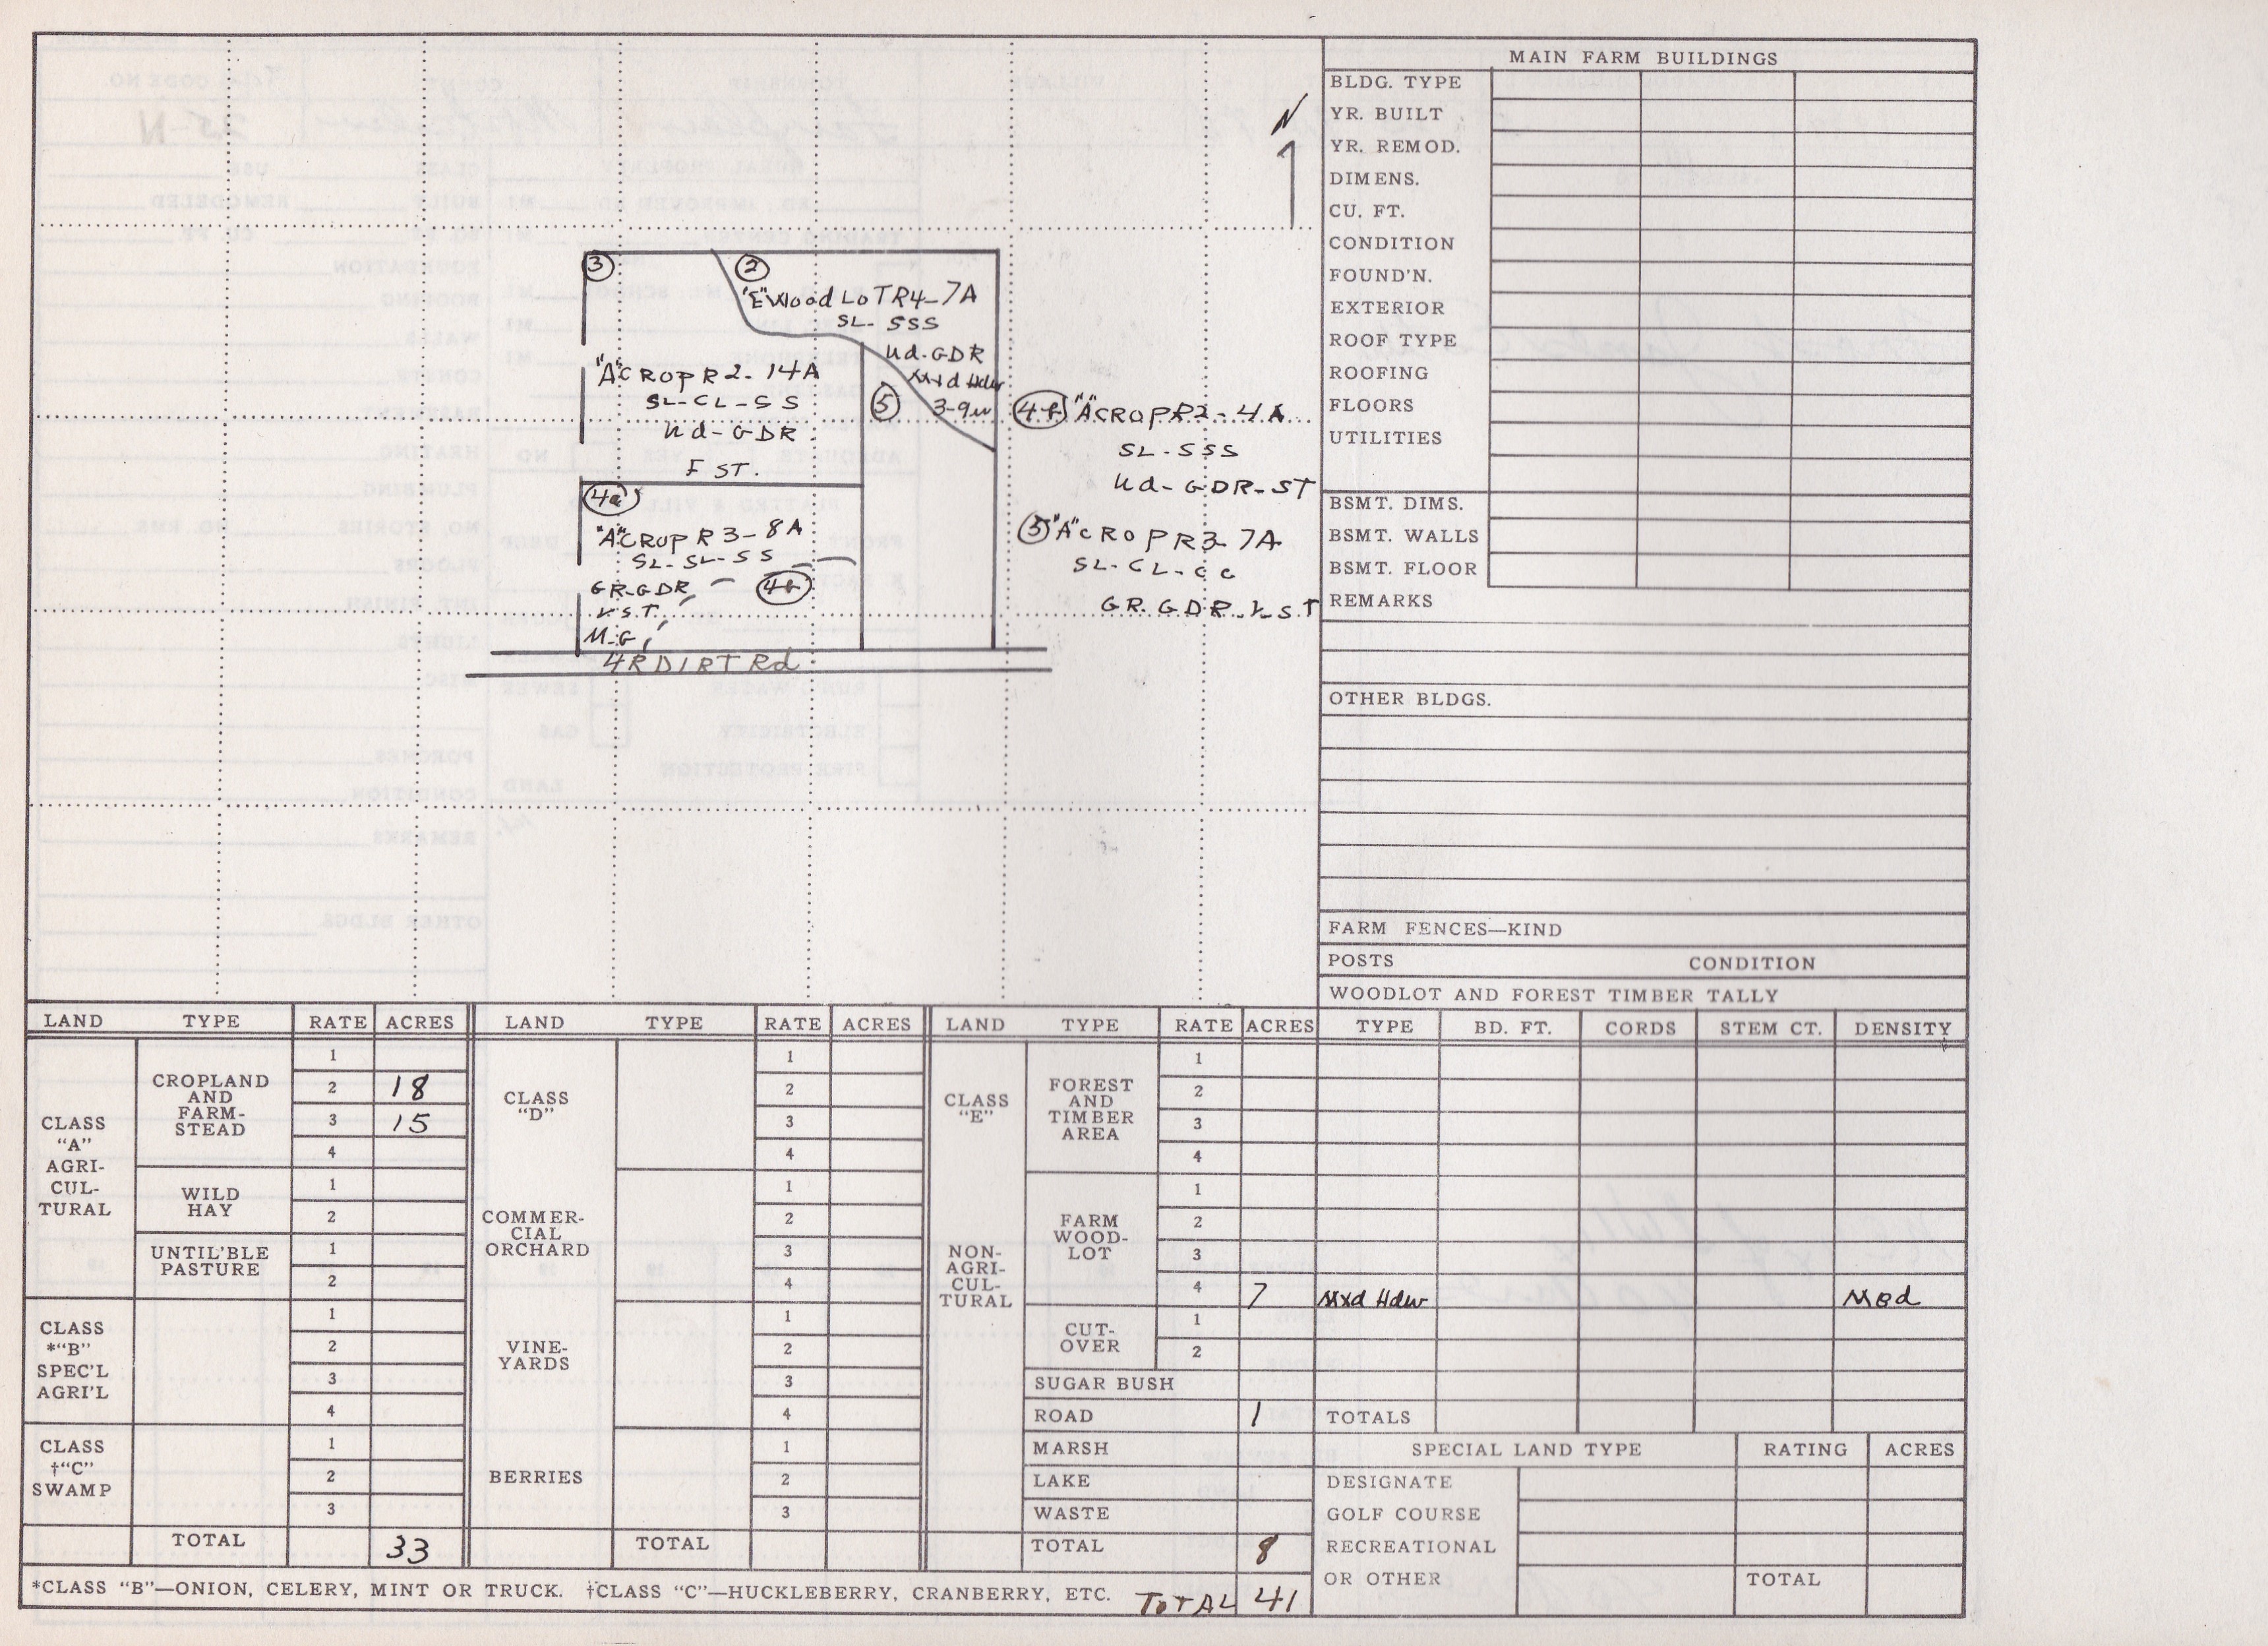 N
③
②
"E" Wood LoT R4-7A
SL- SSS
Ud-GDR
Mxd Hdw
3-9"
"A" CROP R2-14A
SL-CL-SS
Ud-GDR
F ST.
⑤
4a
"A" CROP R3-8A
SL-SL-SS
GR-GDR
V.S.T.
M.G
4b
4R DIRT Rd
4b "A" CROP R2-4A
SL-SSS
Ud-GDR-ST
⑤ "A" CROP R3-7A
SL-CL-CC
GR.GDR.V-ST
MAIN FARM BUILDINGS
BLDG. TYPE
YR. BUILT
YR. REMOD.
DIMENS.
CU. FT.
CONDITION
FOUND'N.
EXTERIOR
ROOF TYPE
ROOFING
FLOORS
UTILITIES
BSMT. DIMS.
BSMT. WALLS
BSMT. FLOOR
REMARKS
OTHER BLDGS.
FARM FENCES—KIND
POSTS CONDITION
WOODLOT AND FOREST TIMBER TALLY
TYPE BD. FT. CORDS STEM CT. DENSITY
Mxd Hdw Med
TOTALS
SPECIAL LAND TYPE RATING ACRES
DESIGNATE
GOLF COURSE
RECREATIONAL
OR OTHER TOTAL
LAND TYPE RATE ACRES
CLASS
"A"
AGRI-
CUL-
TURAL
CROPLAND
AND
FARM-
STEAD
1
2 18
3 15
4
WILD
HAY
1
2
UNTIL'BLE
PASTURE
1
2
CLASS
*"B"
SPEC'L
AGRI'L
1
2
3
4
CLASS
†"C"
SWAMP
1
2
3
TOTAL 33
LAND TYPE RATE ACRES
CLASS
"D"
1
2
3
4
COMMER-
CIAL
ORCHARD
1
2
3
4
VINE-
YARDS
1
2
3
4
BERRIES
1
2
3
TOTAL
LAND TYPE RATE ACRES
CLASS
"E"
NON-
AGRI-
CUL-
TURAL
FOREST
AND
TIMBER
AREA
1
2
3
4
FARM
WOOD-
LOT
1
2
3
4 7
CUT-
OVER
1
2
SUGAR BUSH
ROAD 1
MARSH
LAKE
WASTE
TOTAL 8
*CLASS "B"—ONION, CELERY, MINT OR TRUCK. †CLASS "C"—HUCKLEBERRY, CRANBERRY, ETC.
TOTAL 41